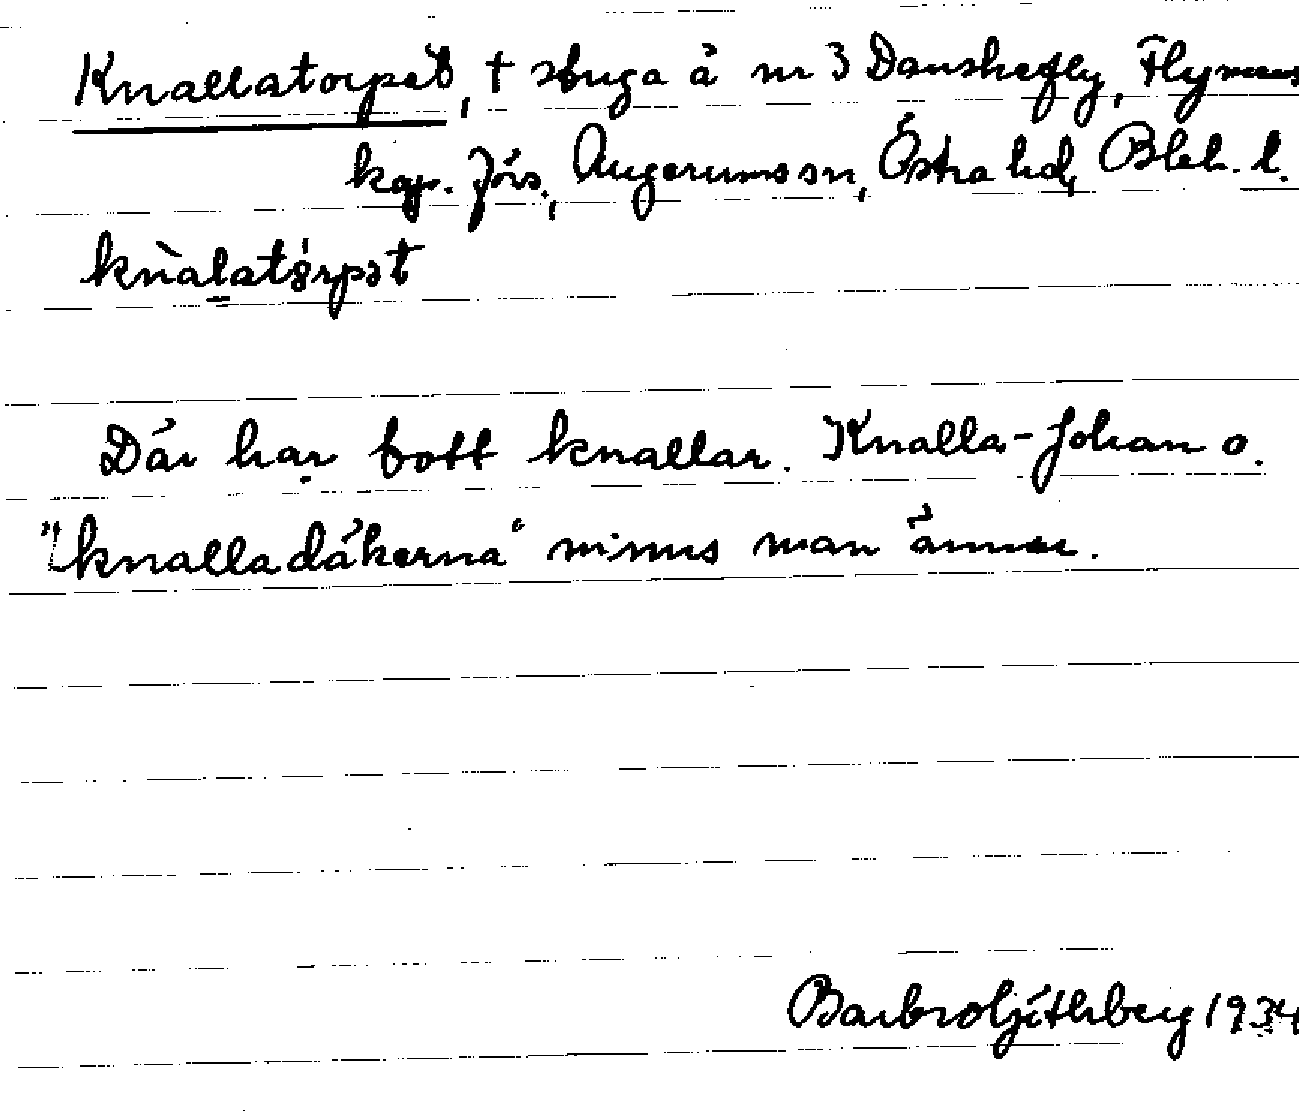 Knallatorpet, † stuga å nr 3 Danskefly, Flymens
kap. förs., Augerums sn, Östra hd, Blek. l.
knàlatórpət
Där har bott knallar. Knalla-Johan o.
"knalladåkerna" minns man ännu.
Barbro Ljüthberg 1934